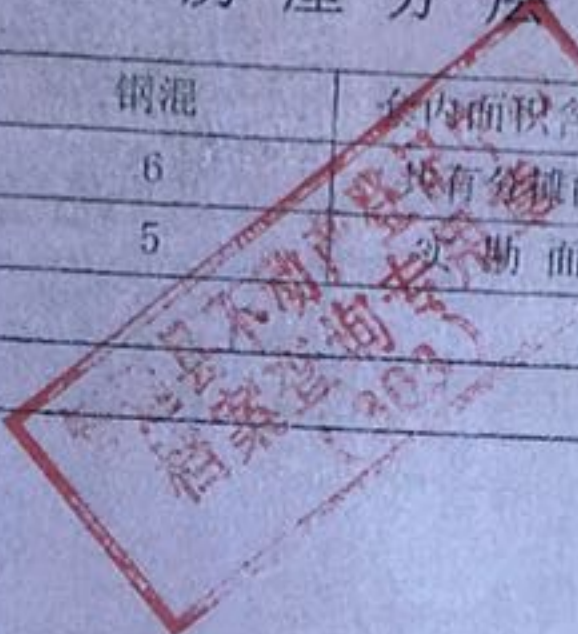 房 屋 分 层
钢混
套内面积
6
共有分摊
5
实 勘 面
县不动产登记
档案查询专用章